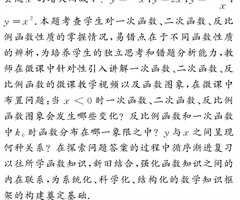 x
y=x²,本题考查学生对一次函数、二次函数、反比
例函数性质的掌握情况,易错点在于不同函数性质
的辨析,为培养学生的独立思考和错题分析能力,教
师在微课中针对性引入讲解一次函数、二次函数、反
比例函数的微课教学视频以及函数图象,在微课中
布置问题:当 x<0 时一次函数、二次函数、反比例
函数图象会发生哪些变化?反比例函数和一次函数
中 k。时函数分布在哪一象限之中?y与x之间呈现
何种关系?在探索问题答案的过程中循序渐进复习
以往所学函数知识,新旧结合,强化函数知识之间的
内在联系,为系统化、科学化、结构化的数学知识框
架的构建奠定基础.